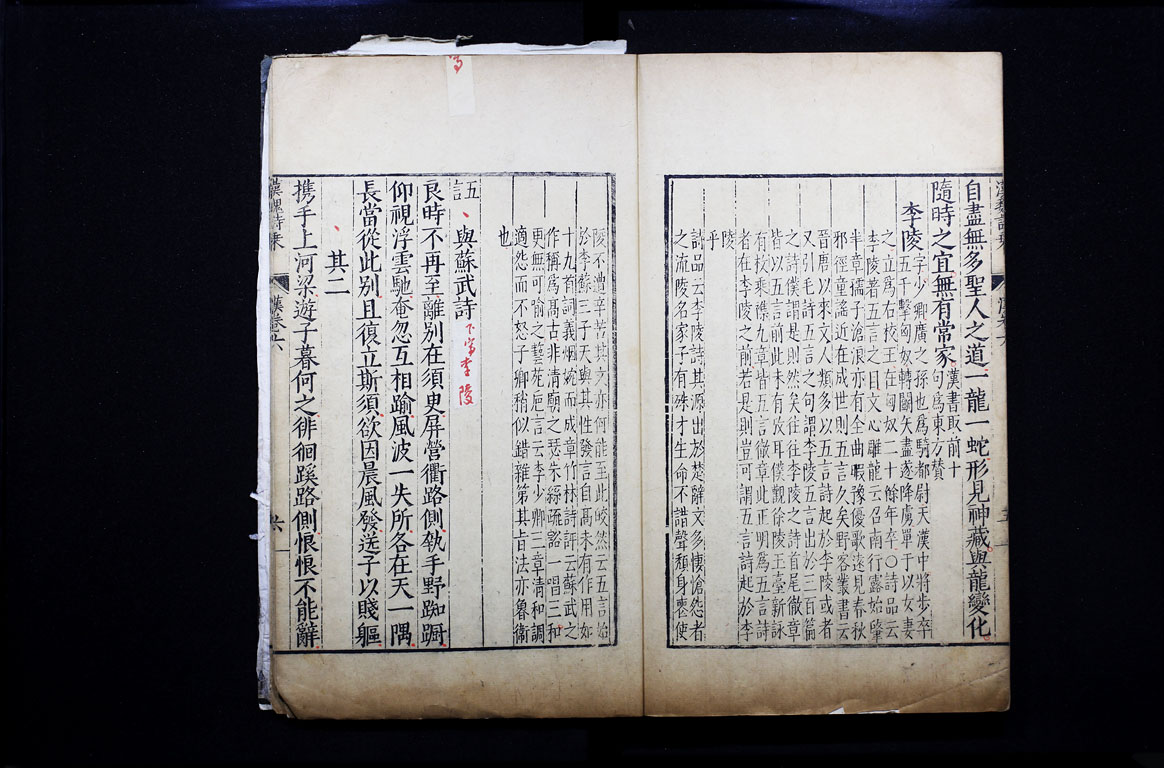 自盡無多聖人之道一龍一蛇形見神藏與龍變化
隨時之宜無有常家
漢書取前十
句爲東方贊
李陵
字少卿廣之孫也爲騎都尉天漢中將步卒
五千擊匈奴轉鬭矢盡遂降虜單于以女妻
之立爲右校王在匈奴二十餘年卒○詩品云
李陵著五言之目文心雕龍云召南行露始肇
半章孺子滄浪亦有全曲暇豫優歌遠見春秋
邪徑童謠近在成世則五言久矣野客叢書云
晉唐以來文人類多以五言詩起於李陵或者
又引毛詩五言之句謂李陵五言出於三百篇
之詩僕謂是則然矣往往李陵之詩首尾徹章
皆以五言前此未有攷耳僕觀徐陵玉臺新詠
有枚乘襍九章皆五言徹章此正明爲五言詩
者在李陵之前若是則豈可謂五言詩起於李
陵
詩品云李陵詩其源出於楚辭文多悽愴怨者
之流陵名家子有殊才生命不諧聲頹身喪使
乎
陵不遭辛苦其文亦何能至此皎然云五言始
於李蘇二子天與其性發言自高未有作用如
十九首詞義烟婉而成章竹林詩評云蘇武之
作稱爲高古非清廟之瑟朱絲疏豁一唱三和
更無可喻之藝苑巵言云李少卿三章清和調
適怨而不怒子卿稍似錯雜第其旨法亦魯衛
也
五言
與蘇武詩
下當李陵
良時不再至離別在須臾屏營衢路側執手野踟躕
仰視浮雲馳奄忽互相踰風波一失所各在天一隅
長當從此別且復立斯須欲因晨風發送子以賤軀
其二
攜手上河梁遊子暮何之徘徊蹊路側悢悢不能辭
漢魏詩乘
漢卷六
六